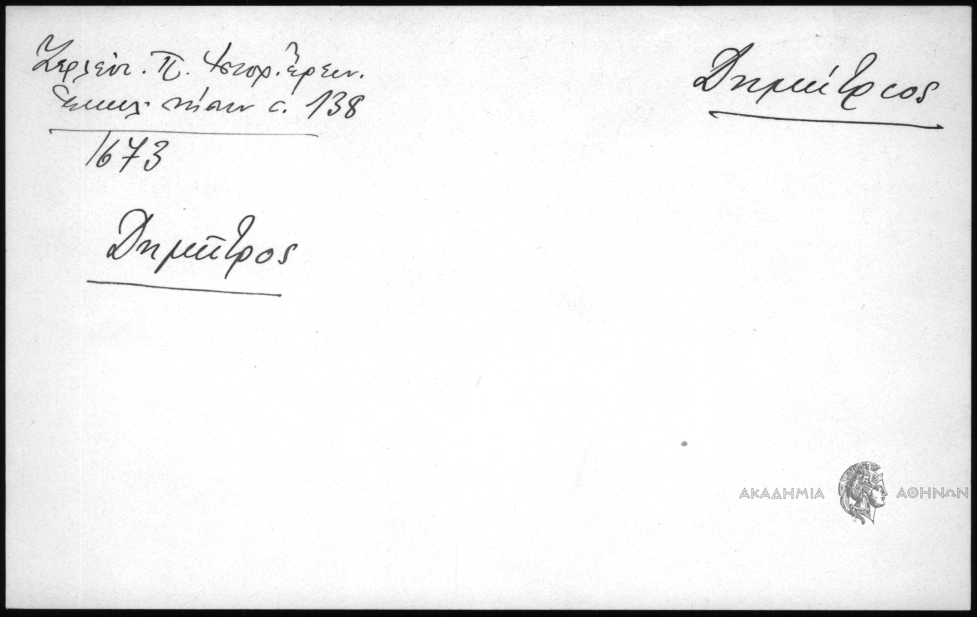 Ζερλέντ. Π. Ἱστορ. Ἔρευν.
Ἐκκλ. νήσων σ. 138
1673
Δημήτρος
Δημήτριος
ΑΚΑΔΗΜΙΑ ΑΘΗΝΩΝ